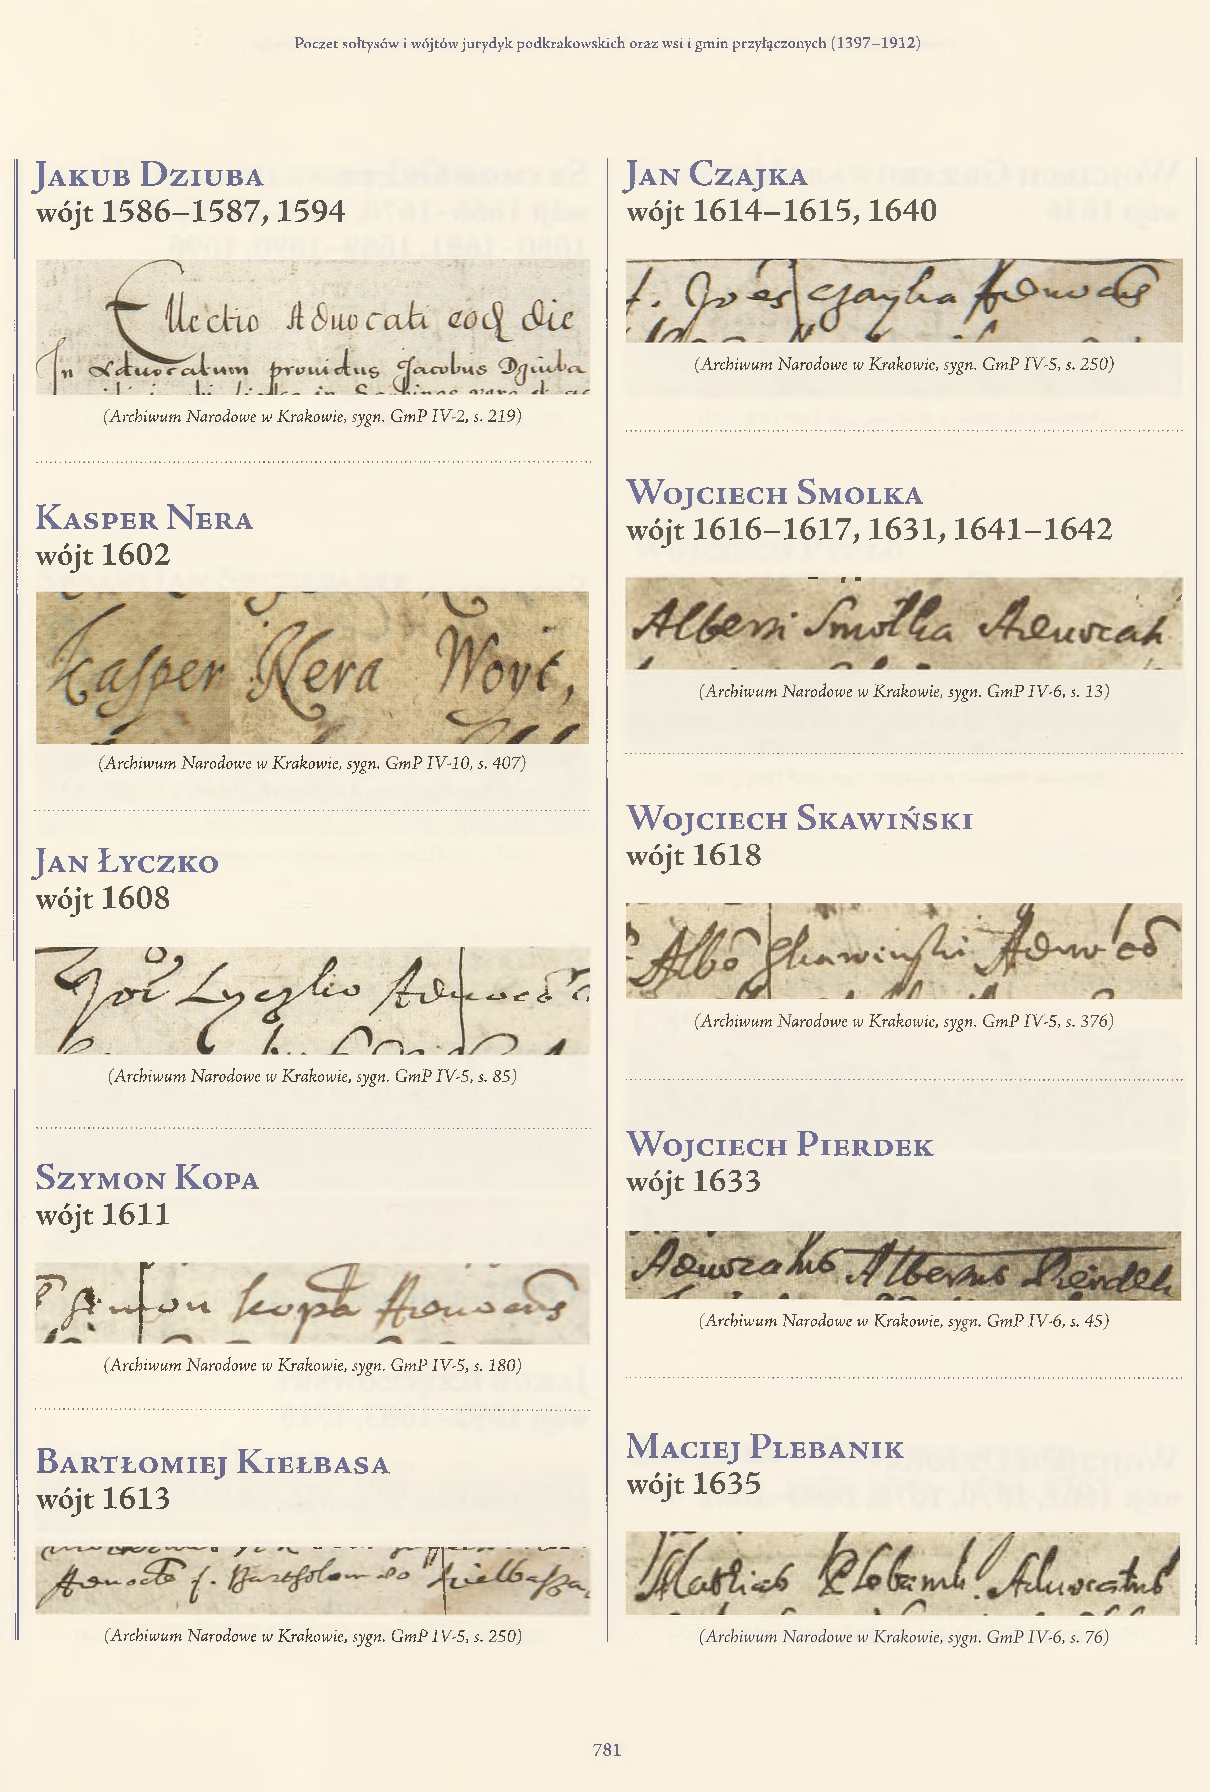 Poczet sołtysów i wójtów jurydyk podkrakowskich oraz wsi i gmin przyłączonych (1397–1912)
Jakub Dziuba
wójt 1586–1587, 1594
Electio Advocati eod die
In Advocatum providus Jacobus Dziuba
(Archiwum Narodowe w Krakowie, sygn. GmP IV-2, s. 219)
Kasper Nera
wójt 1602
Kasper Nera Woyt,
(Archiwum Narodowe w Krakowie, sygn. GmP IV-10, s. 407)
Jan Łyczko
wójt 1608
Lyczko
(Archiwum Narodowe w Krakowie, sygn. GmP IV-5, s. 85)
Szymon Kopa
wójt 1611
Simon kopa
(Archiwum Narodowe w Krakowie, sygn. GmP IV-5, s. 180)
Bartłomiej Kiełbasa
wójt 1613
Bartholomeo Kielbassa
(Archiwum Narodowe w Krakowie, sygn. GmP IV-5, s. 250)
Jan Czajka
wójt 1614–1615, 1640
Czayka
(Archiwum Narodowe w Krakowie, sygn. GmP IV-5, s. 250)
Wojciech Smolka
wójt 1616–1617, 1631, 1641–1642
Alberti Smolka Advocati
(Archiwum Narodowe w Krakowie, sygn. GmP IV-6, s. 13)
Wojciech Skawiński
wójt 1618
Skawinski
(Archiwum Narodowe w Krakowie, sygn. GmP IV-5, s. 376)
Wojciech Pierdek
wójt 1633
Advocatus Albertus Pierdek
(Archiwum Narodowe w Krakowie, sygn. GmP IV-6, s. 45)
Maciej Plebanik
wójt 1635
Mathias Plebanik Advocatus
(Archiwum Narodowe w Krakowie, sygn. GmP IV-6, s. 76)
781